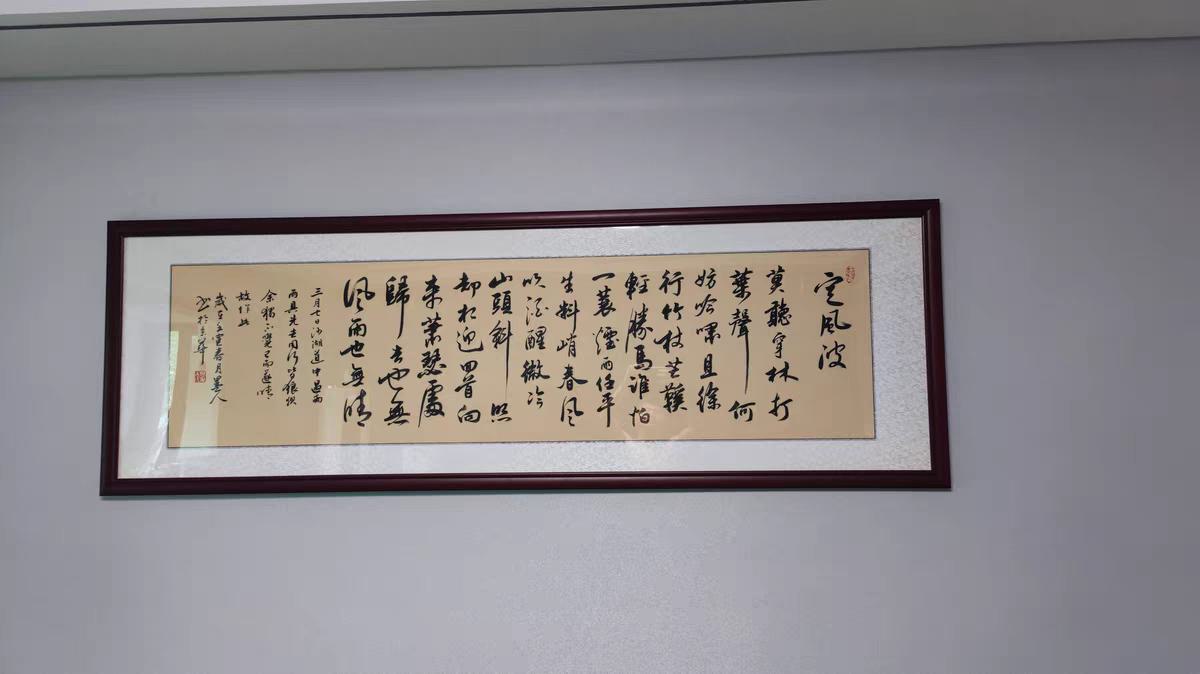 定風波
莫聽穿林打
葉聲何
妨吟嘯且徐
行竹杖芒鞵
輕勝馬誰怕
一蓑煙雨任平
生料峭春風
吹酒醒微冷
山頭斜照
却相迎回首向
來蕭瑟處
歸去也無
風雨也無晴
三月七日沙湖道中遇雨
雨具先去同行皆狼狽
余獨不覺已而遂晴
故作此
歲在壬寅春月墨人